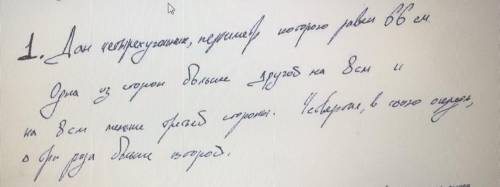 1. Дан четырехугольник, периметр которого равен 66 см.
Одна из сторон больше другой на 8 см и
на 8 см меньше третьей стороны. Четвертая, в свою очередь,
в три раза больше второй.